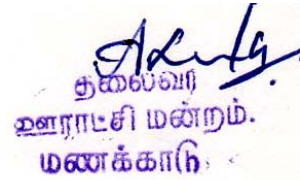 தலைவர்
ஊராட்சி மன்றம்.
மணக்காடு